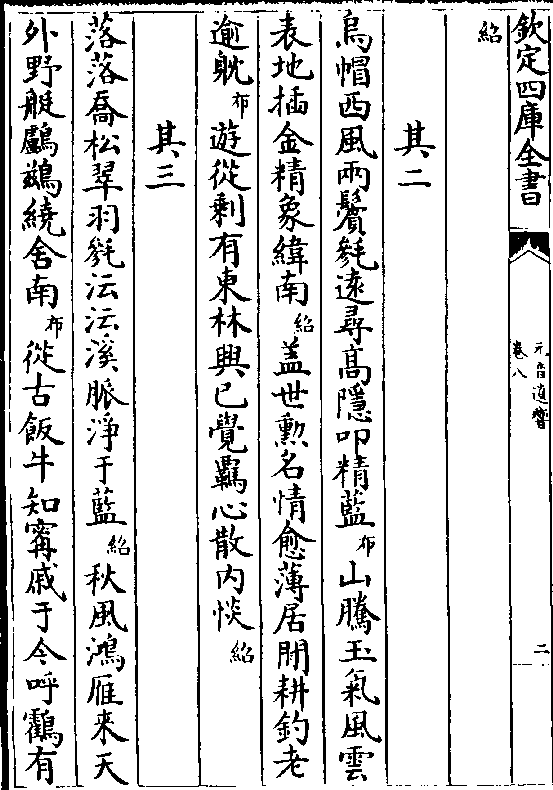 欽定四庫全書
元音遺響
卷八
二
紹
其二
烏帽西風兩鬢毿遠尋高隱叩精藍布山騰玉氣風雲
表地插金精象緯南紹盖世勲名情愈薄居閒耕釣老
逾躭布遊從剰有東林興已覺羈心散内惔紹
其三
落落喬松翠羽毿沄沄溪脈淨于藍紹秋風鴻雁來天
外野艇鸕鷀繞舍南布從古飯牛知寗戚于今呼鸛有